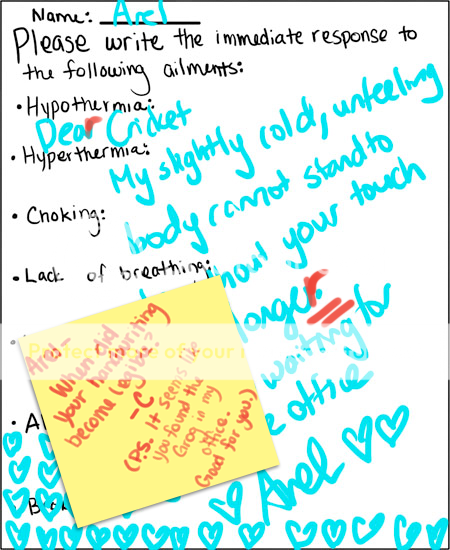 Name: Arel
Please write the immediate response to
the following ailments:
• Hypothermia:
• Hyperthermia:
• Choking:
• Lack of breathing:
Dear Cricket
My slightly cold, unfeeling
body cannot stand to
your touch
longer.
waiting for
office
Arel
Arel-
When did
your handwriting
become legible?
-C
(P.s. It seems like
you found the
Grog in my
office.
Good for you.)